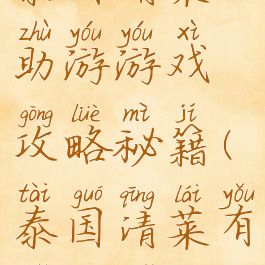 zhù yóu yóu xì
助游游戏
gōng lüè mì jí
攻略秘籍(
tài guó qīng lái yǒu
泰国清莱有